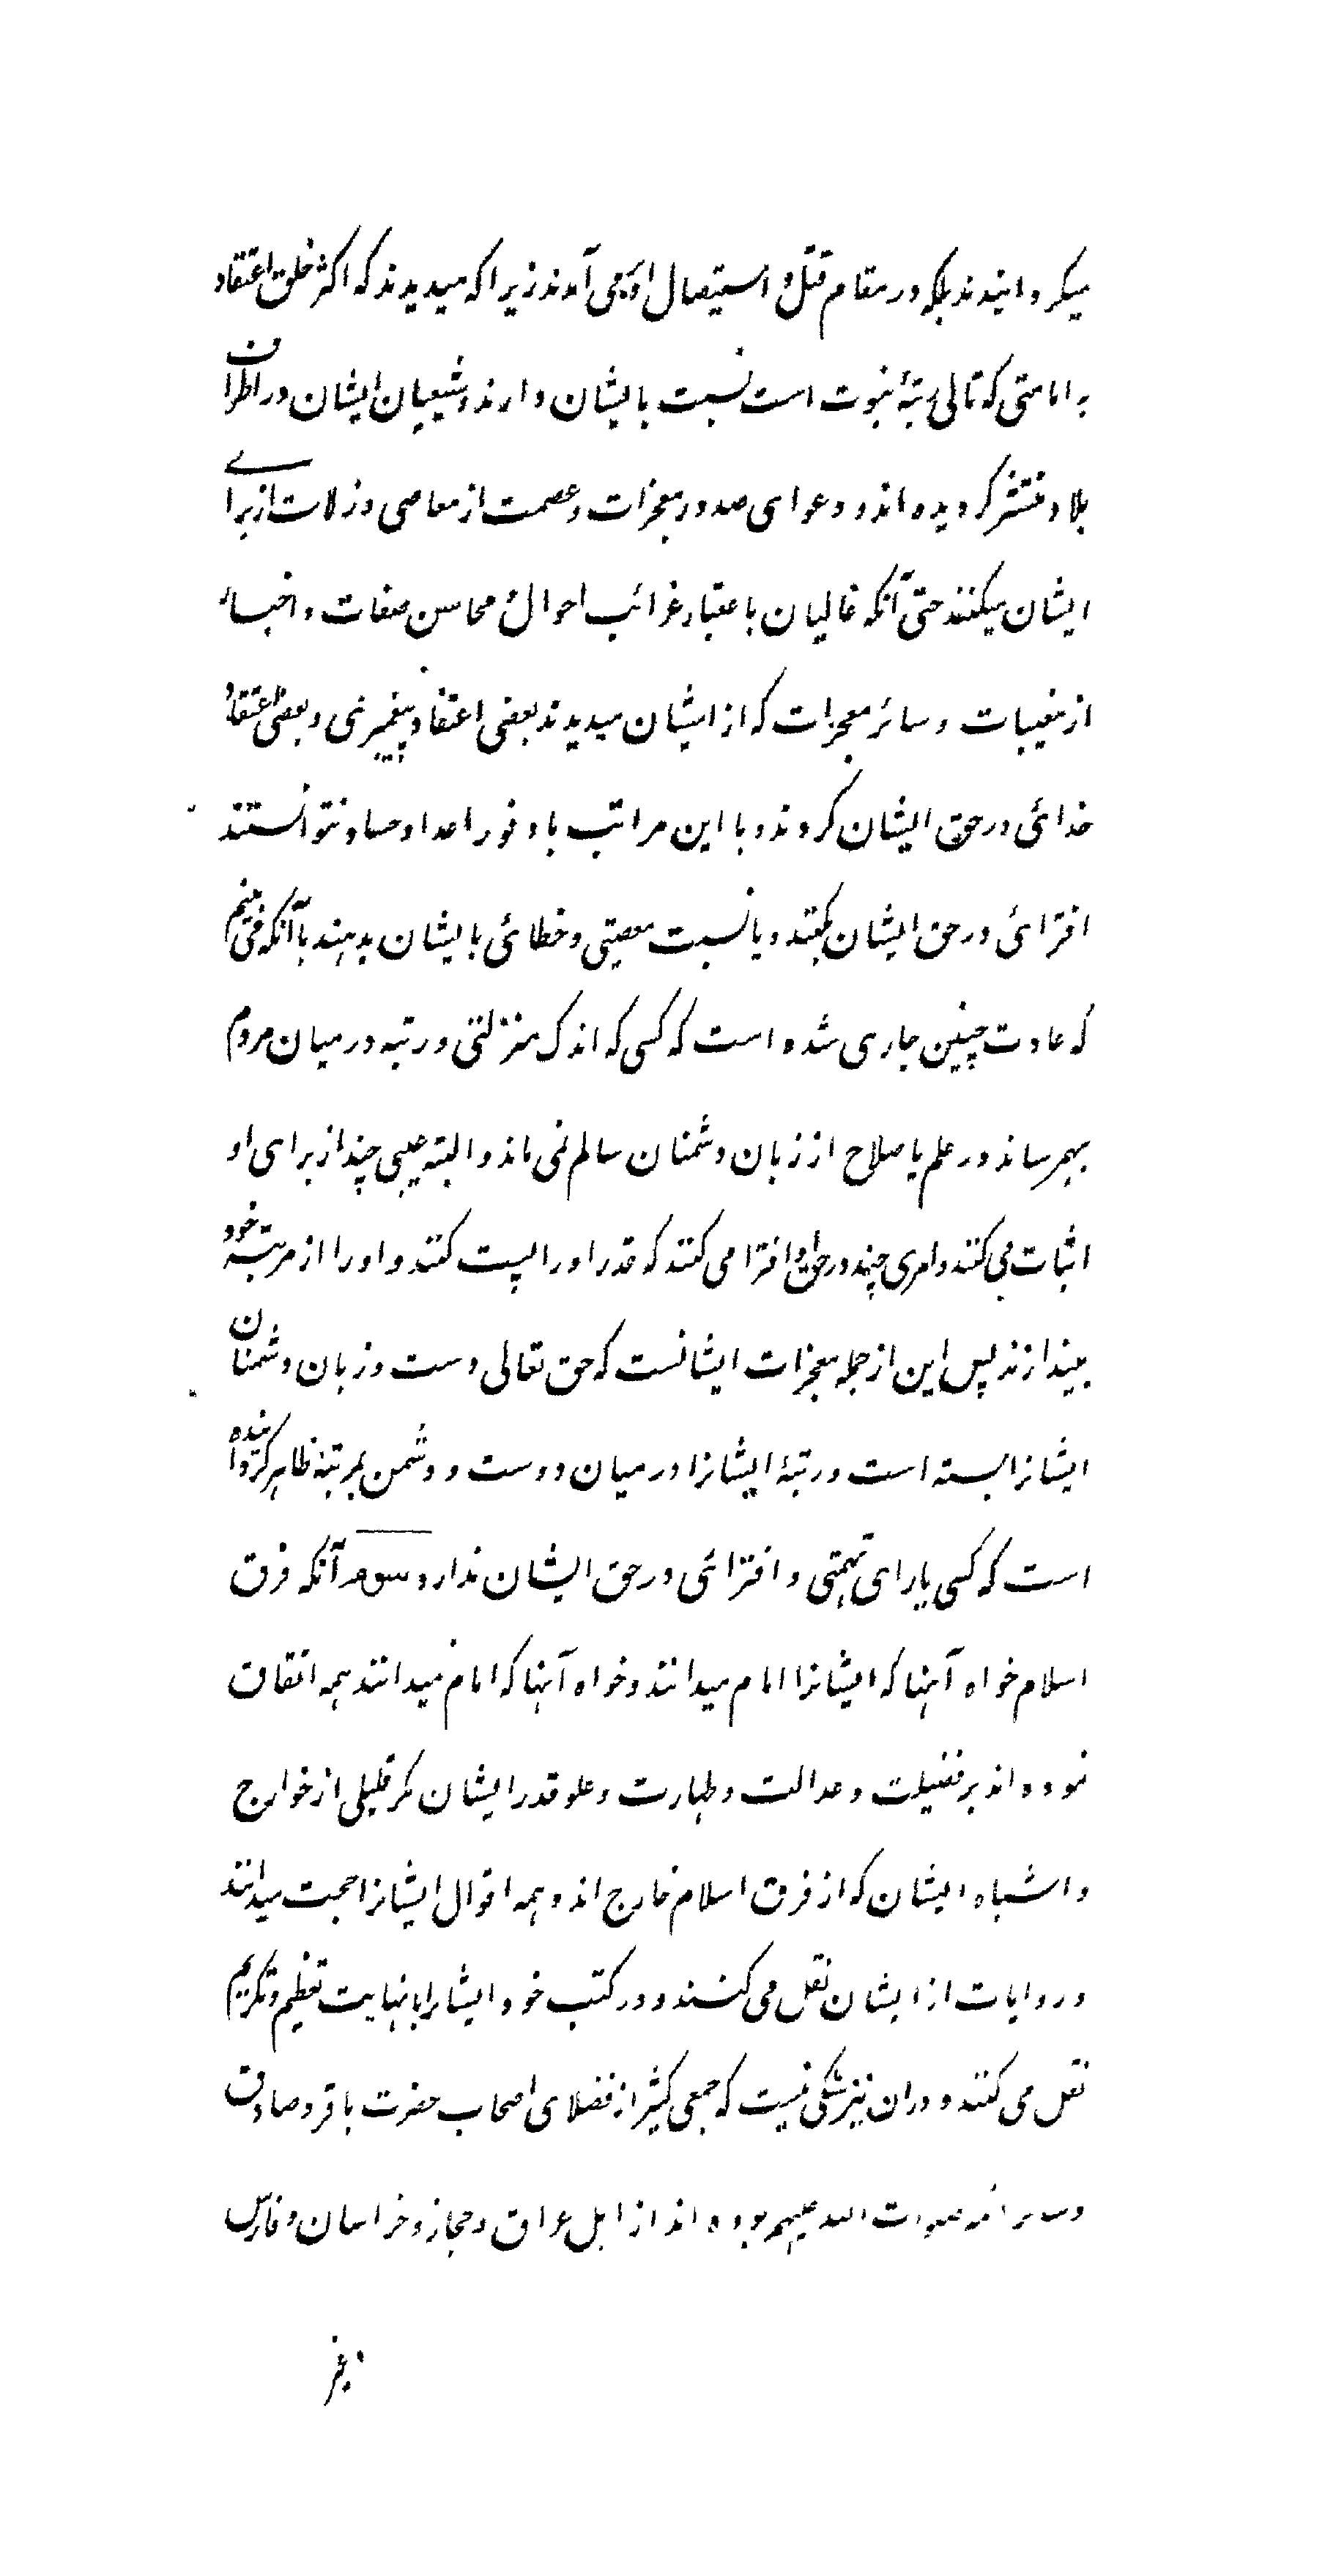 میکردانیدند بلکه در مقام قتل و استیصال او می آمدند زیرا که میدیدند که اکثر خلق اعتقاد
به امامتی که تالی رتبهٔ نبوت است نسبت بایشان دارند و شیعیان ایشان در اطراف
بلاد منتشر کردیده اند و دعوای صدور معجزات و عصمت از معاصی و زلات از برای
ایشان میکنند حتی آنکه غالیان باعتبار غرائب احوال و محاسن صفات و اخبار
از مغیبات و سائر معجزات که از ایشان میدیدند بعضی اعتقاد پیغمبری و بعضی اعتقاد
خدائی در حق ایشان کردند و با این مراتب با وفور اعدا و حساد نتوانستند
افترائی در حق ایشان بکنند و یا نسبت معصیتی و خطائی بایشان بدهند با آنکه می بینیم
که عادت چنین جاری شده است که کسی که اندک منزلتی و رتبه در میان مردم
بهم رساند در علم یا صلاح از زبان دشمنان سالم نمی ماند و البته عیبی چند از برای او
اثبات می کنند و امری چند در حق او افترا می کنند که قدر او را پست کنند و او را از مرتبه خود
بیندازند پس این از جمله معجزات ایشانست که حق تعالی دست و زبان دشمنان
ایشانرا بسته است و رتبهٔ ایشانرا در میان دوست و دشمن بمرتبهٔ ظاهر کردانیده
است که کسی یارای تهمتی و افترائی در حق ایشان ندارد سوم آنکه فرق
اسلام خواه آنها که ایشانرا امام میدانند و خواه آنها که امام نمیدانند همه اتفاق
نموده اند بر فضیلت و عدالت و طهارت و علو قدر ایشان مکر قلیلی از خوارج
و اشباه ایشان که از فرق اسلام خارج اند و همه اقوال ایشانرا حجت میدانند
و روایات از ایشان نقل می کنند و در کتب خود ایشانرا بنهایت تعظیم و تکریم
نقل می کنند و دران نیز شکی نیست که جمعی کثیر از فضلای اصحاب حضرت باقر و صادق
و سایر ائمه صلوات الله علیهم بوده اند از اهل عراق و حجاز و خراسان و فارس